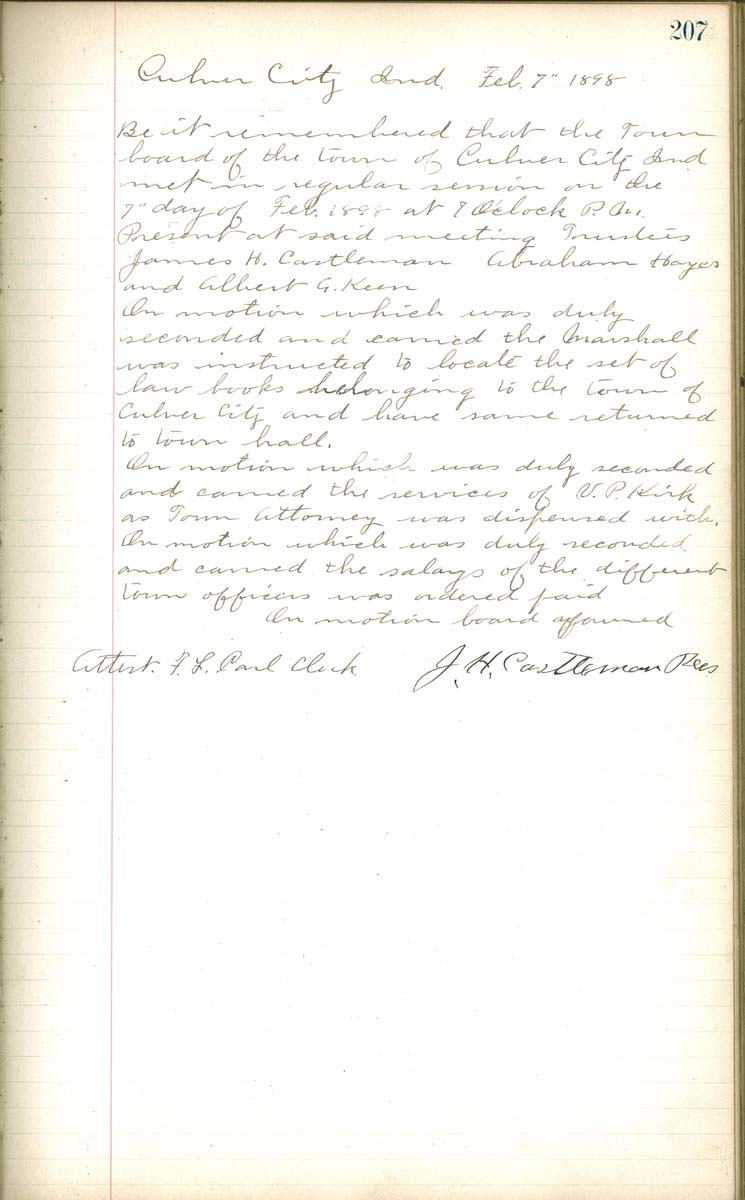 207
Culver City Ind. Feb. 7" 1898
Be it remembered that the Town
board of the town of Culver City Ind
met in regular session on the
7" day of Feb. 1898 at 7 Oclock P.M.
Present at said meeting Trustees
James H. Castleman Abraham Hayes
and Albert G. Keen
On motion which was duly
seconded and carried the Marshall
was instructed to locate the set of
law books belonging to the town of
Culver City and have same returned
to town hall.
On motion which was duly seconded
and carried the services of V. P. Kirk
as Town Attorney was dispensed with.
On motion which was duly seconded
and carried the salarys of the different
town officers was ordered paid
On motion board ajourned
Attest. F. L. Clerk J. H. Castleman Pres